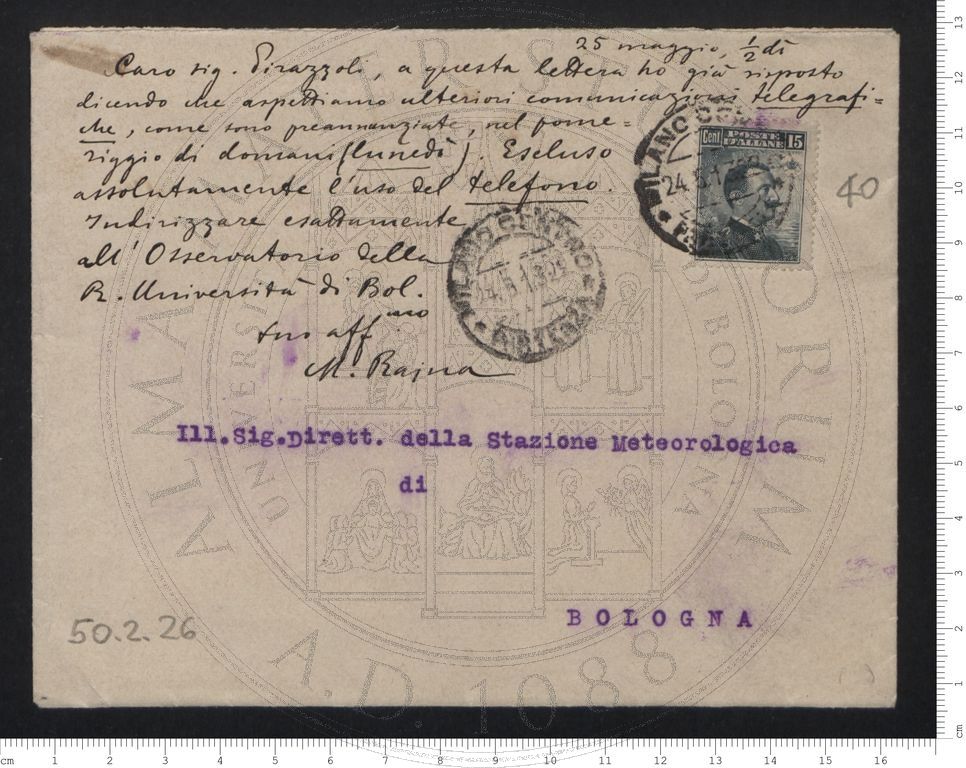 25 maggio, ½ dì
Caro sig. Pirazzoli, a questa lettera ho già risposto
dicendo che aspettiamo ulteriori comunicazioni telegrafi=
che, come sono preannunziate, nel pome=
riggio di domani (lunedì). Escluso
assolutamente l'uso del telefono.
Indirizzare esattamente
all'Osservatorio della
R. Università di Bol.
suo aff.mo
M. Rajna
Cent POSTE ITALIANE 15
MILANO CENTRO
24.5.1
40
MILANO CENTRO
24.5.1
Ill.Sig.Dirett. della Stazione Meteorologica
di
BOLOGNA
50.2.26
ALMA MATER STUDIORUM
A.D. 1088
cm 1 2 3 4 5 6 7 8 9 10 11 12 13 14 15 16
cm 1 2 3 4 5 6 7 8 9 10 11 12 13